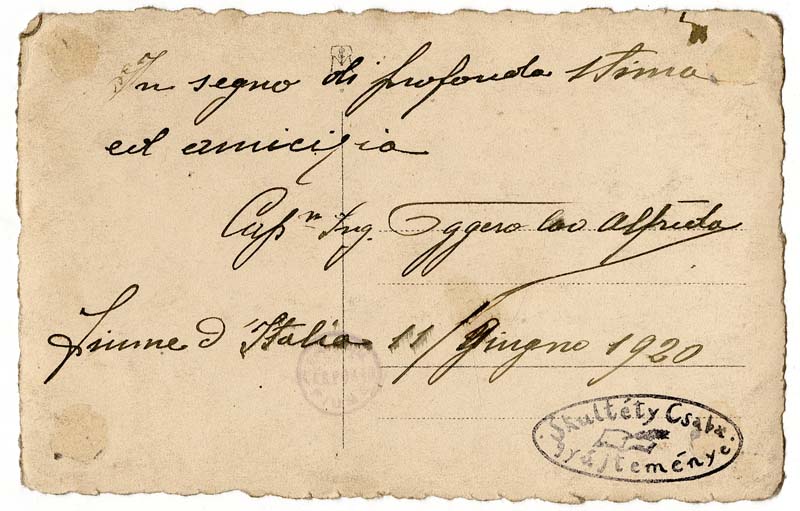 In segno di profonda stima
ed amicizia
Cap.n Ing. Oggero Cav Alfredo
Fiume d'Italia 11/Giugno 1920
Skultéty Csaba
gyűjteménye